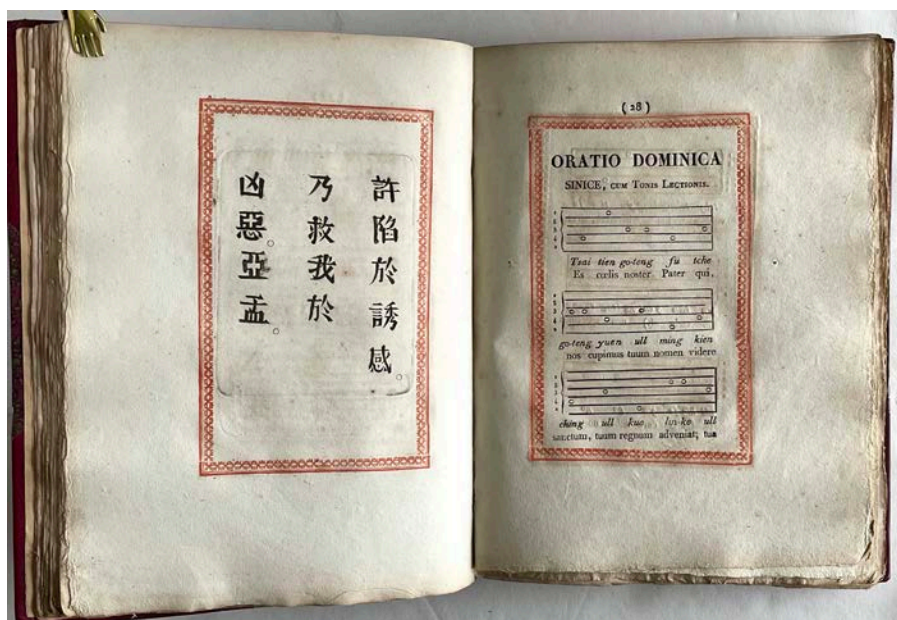 許陷於誘感。
乃救我於
凶惡。亞孟。
( 28 )
ORATIO DOMINICA
SINICE, CUM TONIS LECTIONIS.
Tsai tien go-teng fu tche
Es cœlis noster Pater qui,
go-teng yuen ull ming kien
nos cupimus tuum nomen videre
ching ull kuo ull
sanctum, tuum regnum adveniat; tua